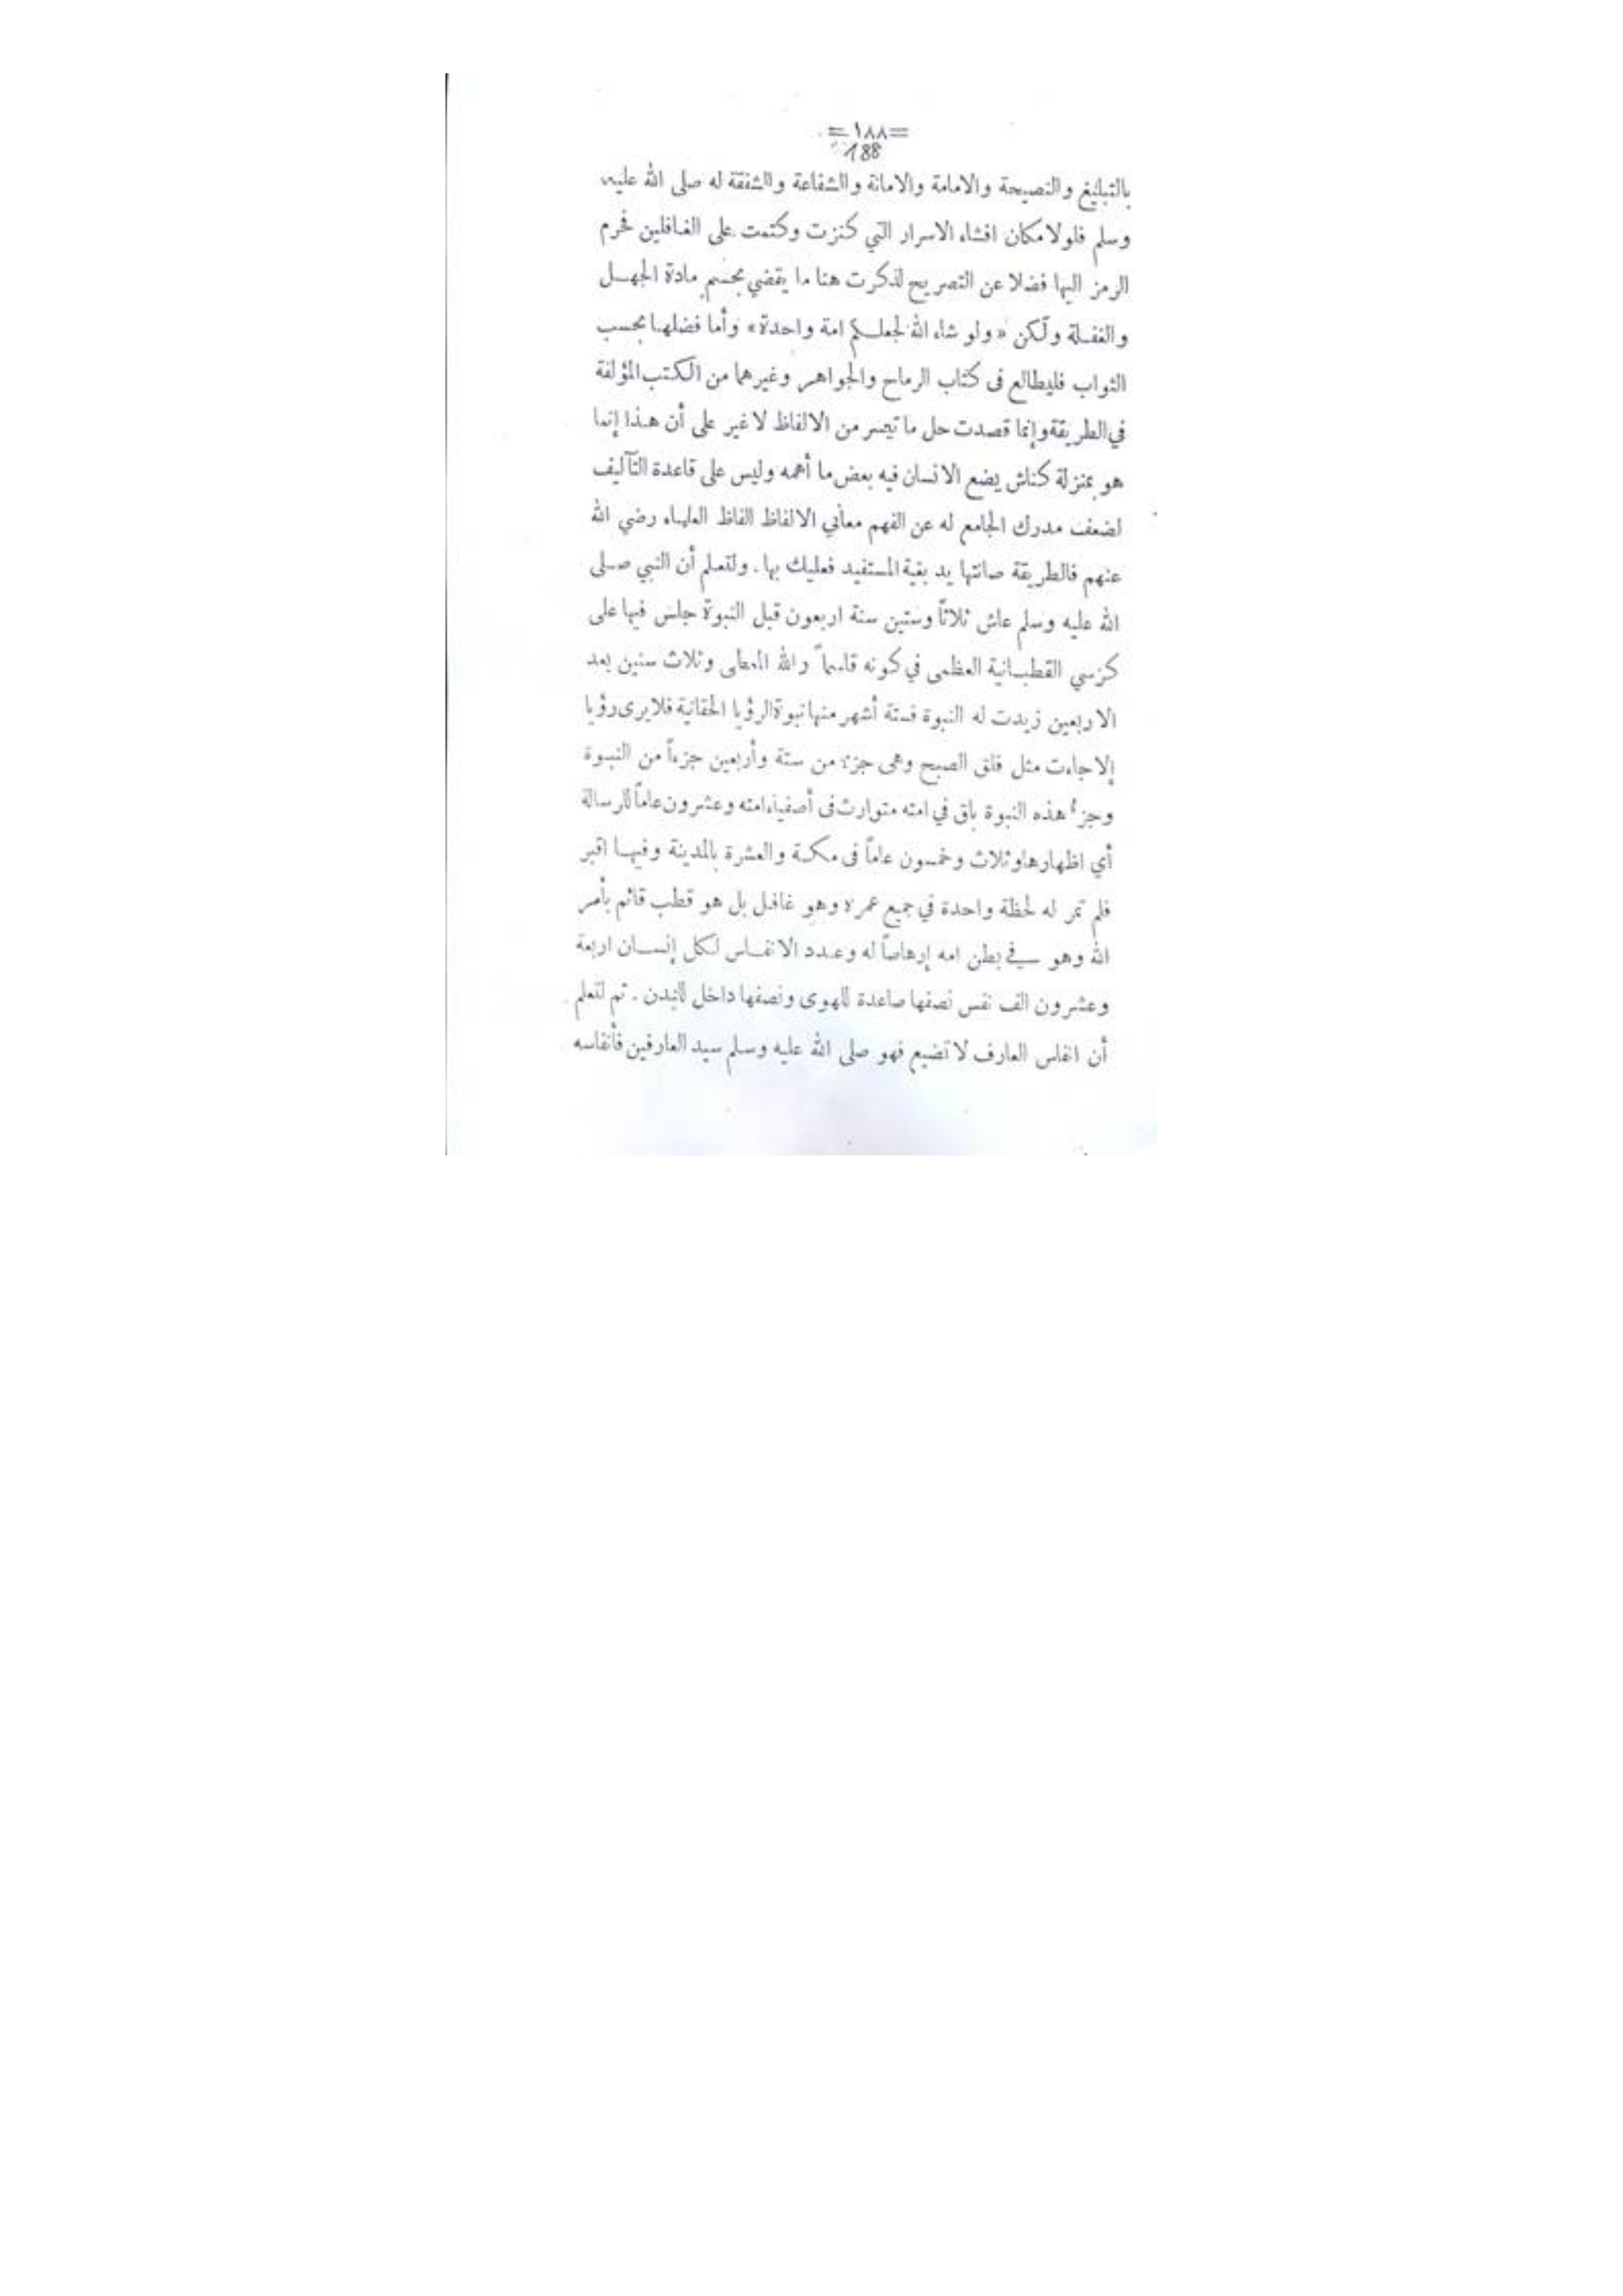 =١٨٨=
188
بالتبليغ والنصيحة والامامة والامانة والشفاعة والشفقة له صلى الله عليه
وسلم فلولا مكان افشاء الاسرار التي كنزت وكتمت على الغافلين فحرم
الرمز اليها فضلا عن التصريح لذكرت هنا ما يقضي بحسم مادة الجهل
والغفلة ولكن «ولو شاء الله لجعلكم امة واحدة» وأما فضلها بحسب
الثواب فليطالع فى كتاب الرماح والجواهر وغيرهما من الكتب المؤلفة
في الطريقة وإنما قصدت حل ما تيسر من الالفاظ لا غير على أن هذا إنما
هو بمنزلة كناش يضع الانسان فيه بعض ما أهمه وليس على قاعدة التآليف
لضعف مدرك الجامع له عن الفهم معاني الالفاظ الفاظ العلماء رضي الله
عنهم فالطريقة صانتها يد بغية المستفيد فعليك بها . ولتعلم أن النبي صلى
الله عليه وسلم عاش ثلاثاً وستين سنة اربعون قبل النبوة جلس فيها على
كرسي القطبانية العظمى في كونه قاسماً والله المعطى وثلاث سنين بعد
الاربعين زيدت له النبوة فستة أشهر منها نبوة الرؤيا الحقانية فلا يرى رؤيا
إلا جاءت مثل فلق الصبح وهى جزء من ستة وأربعين جزءاً من النبوة
وجزء هذه النبوة باق في امته متوارث فى أصفياء امته وعشرون عاماً للرسالة
أي اظهارها وثلاث وخمسون عاماً فى مكة والعشرة بالمدينة وفيها اقبر
فلم تمر له لحظة واحدة في جميع عمره وهو غافل بل هو قطب قائم بأمر
الله وهو في بطن امه إرهاصاً له وعدد الانفاس لكل إنسان اربعة
وعشرون الف نفس نصفها صاعدة للهوى ونصفها داخل للبدن . ثم لتعلم
أن انفاس العارف لا تضيع فهو صلى الله عليه وسلم سيد العارفين فأنفاسه